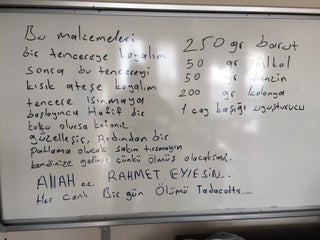 Bu malzemeleri
bir tencereye koyalım
sonra bu tencereyi
kısık ateşe koyalım
tencere ısınmaya
başlayınca Hafif bir
koku olursa kafanız
güzelleşir, Ardından bir
patlama olucak sakın tırsmayın
kendinize gelince çünkü ölmüş olacaksınız.
Allah c.c. RAHMET EYLESİN..
Her canlı Bir gün Ölümü Tadacaktır....
250 gr barut
50 gr Alkol
50 gr benzin
200 gr kolonya
1 çay kaşığı uyuşturucu